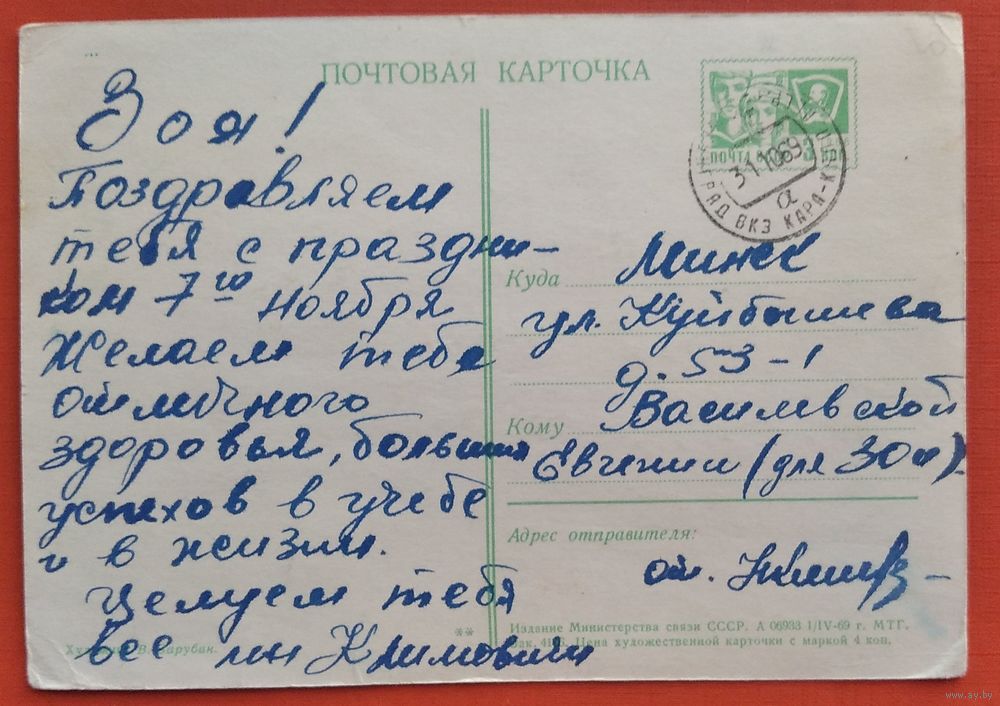 ПОЧТОВАЯ КАРТОЧКА
Зоя!
Поздравляем
тебя с праздни-
ком 7го Ноября
Желаем тебе
отличного
здоровья, больших
успехов в учебе
и в жизни.
Целуем тебя
все мы Климовичи
Худ. В. Зарубин.
**
ПОЧТА
31 10 69
а
РАД ВКЗ КАРА-К
Куда Минск
ул. Куйбышева
д. 53-1
Кому Василевской
Евгении (для Зои)
Адрес отправителя:
от.
Издание Министерства связи СССР. А 06933 1/IV-69 г. МТГ.
Зак. Цена художественной карточки с маркой 4 коп.
www.ay.by